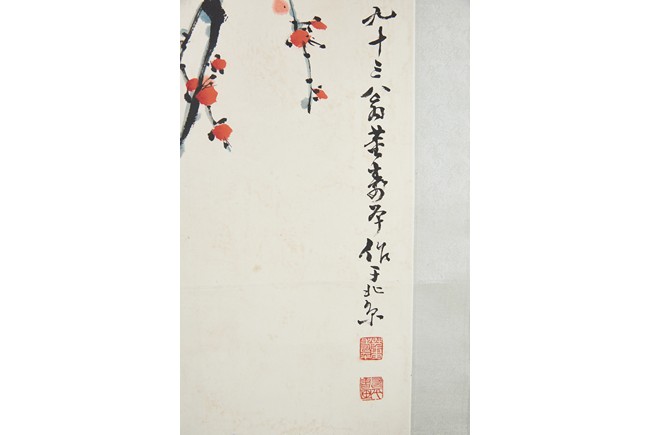 九十三翁董寿平作于北京